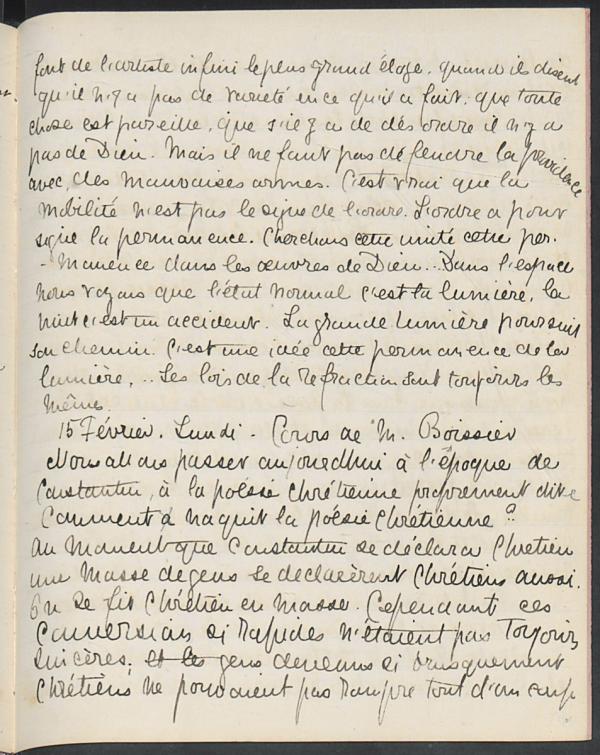 font de l'artiste infini le plus grand éloge. quand ils disent
qu'il n'y a pas de varieté en ce qu'il a fait. que toute
chose est pareille, que s'il y a de désordre il n'y a
pas de Dieu. Mais il ne faut pas défendre la providence
avec des mauvaises armes. C'est vrai que la
mobilité n'est pas le signe de l'ordre. L'ordre a pour
signe la permanence. Cherchons cette unité cette per-
- manence dans les œuvres de Dieu... Dans l'espace
nous voyons que l'état normal c'est la lumière, la
nuit c'est un accident. La grande lumière poursuit
son chemin. C'est une idée cette permanence de la
lumière... Les lois de la refraction sont toujours les
mêmes.
15 Février. Lundi - Cours de M. Boissier
Nous allons passer aujourdhui à l'époque de
Constantin, à la poésie chrétienne proprement dite
Comment naquit la poésie Chrétienne?
Au moment que Constantin se déclara Chretien
une masse de gens se declarèrent Chrétiens aussi.
On se fit Chrétien en masse. Cependant ces
conversions si rapides n'étaient pas toujours
sincères. et les gens devenus si brusquement
Chrétiens ne pouvaient pas rompre tout d'un coup